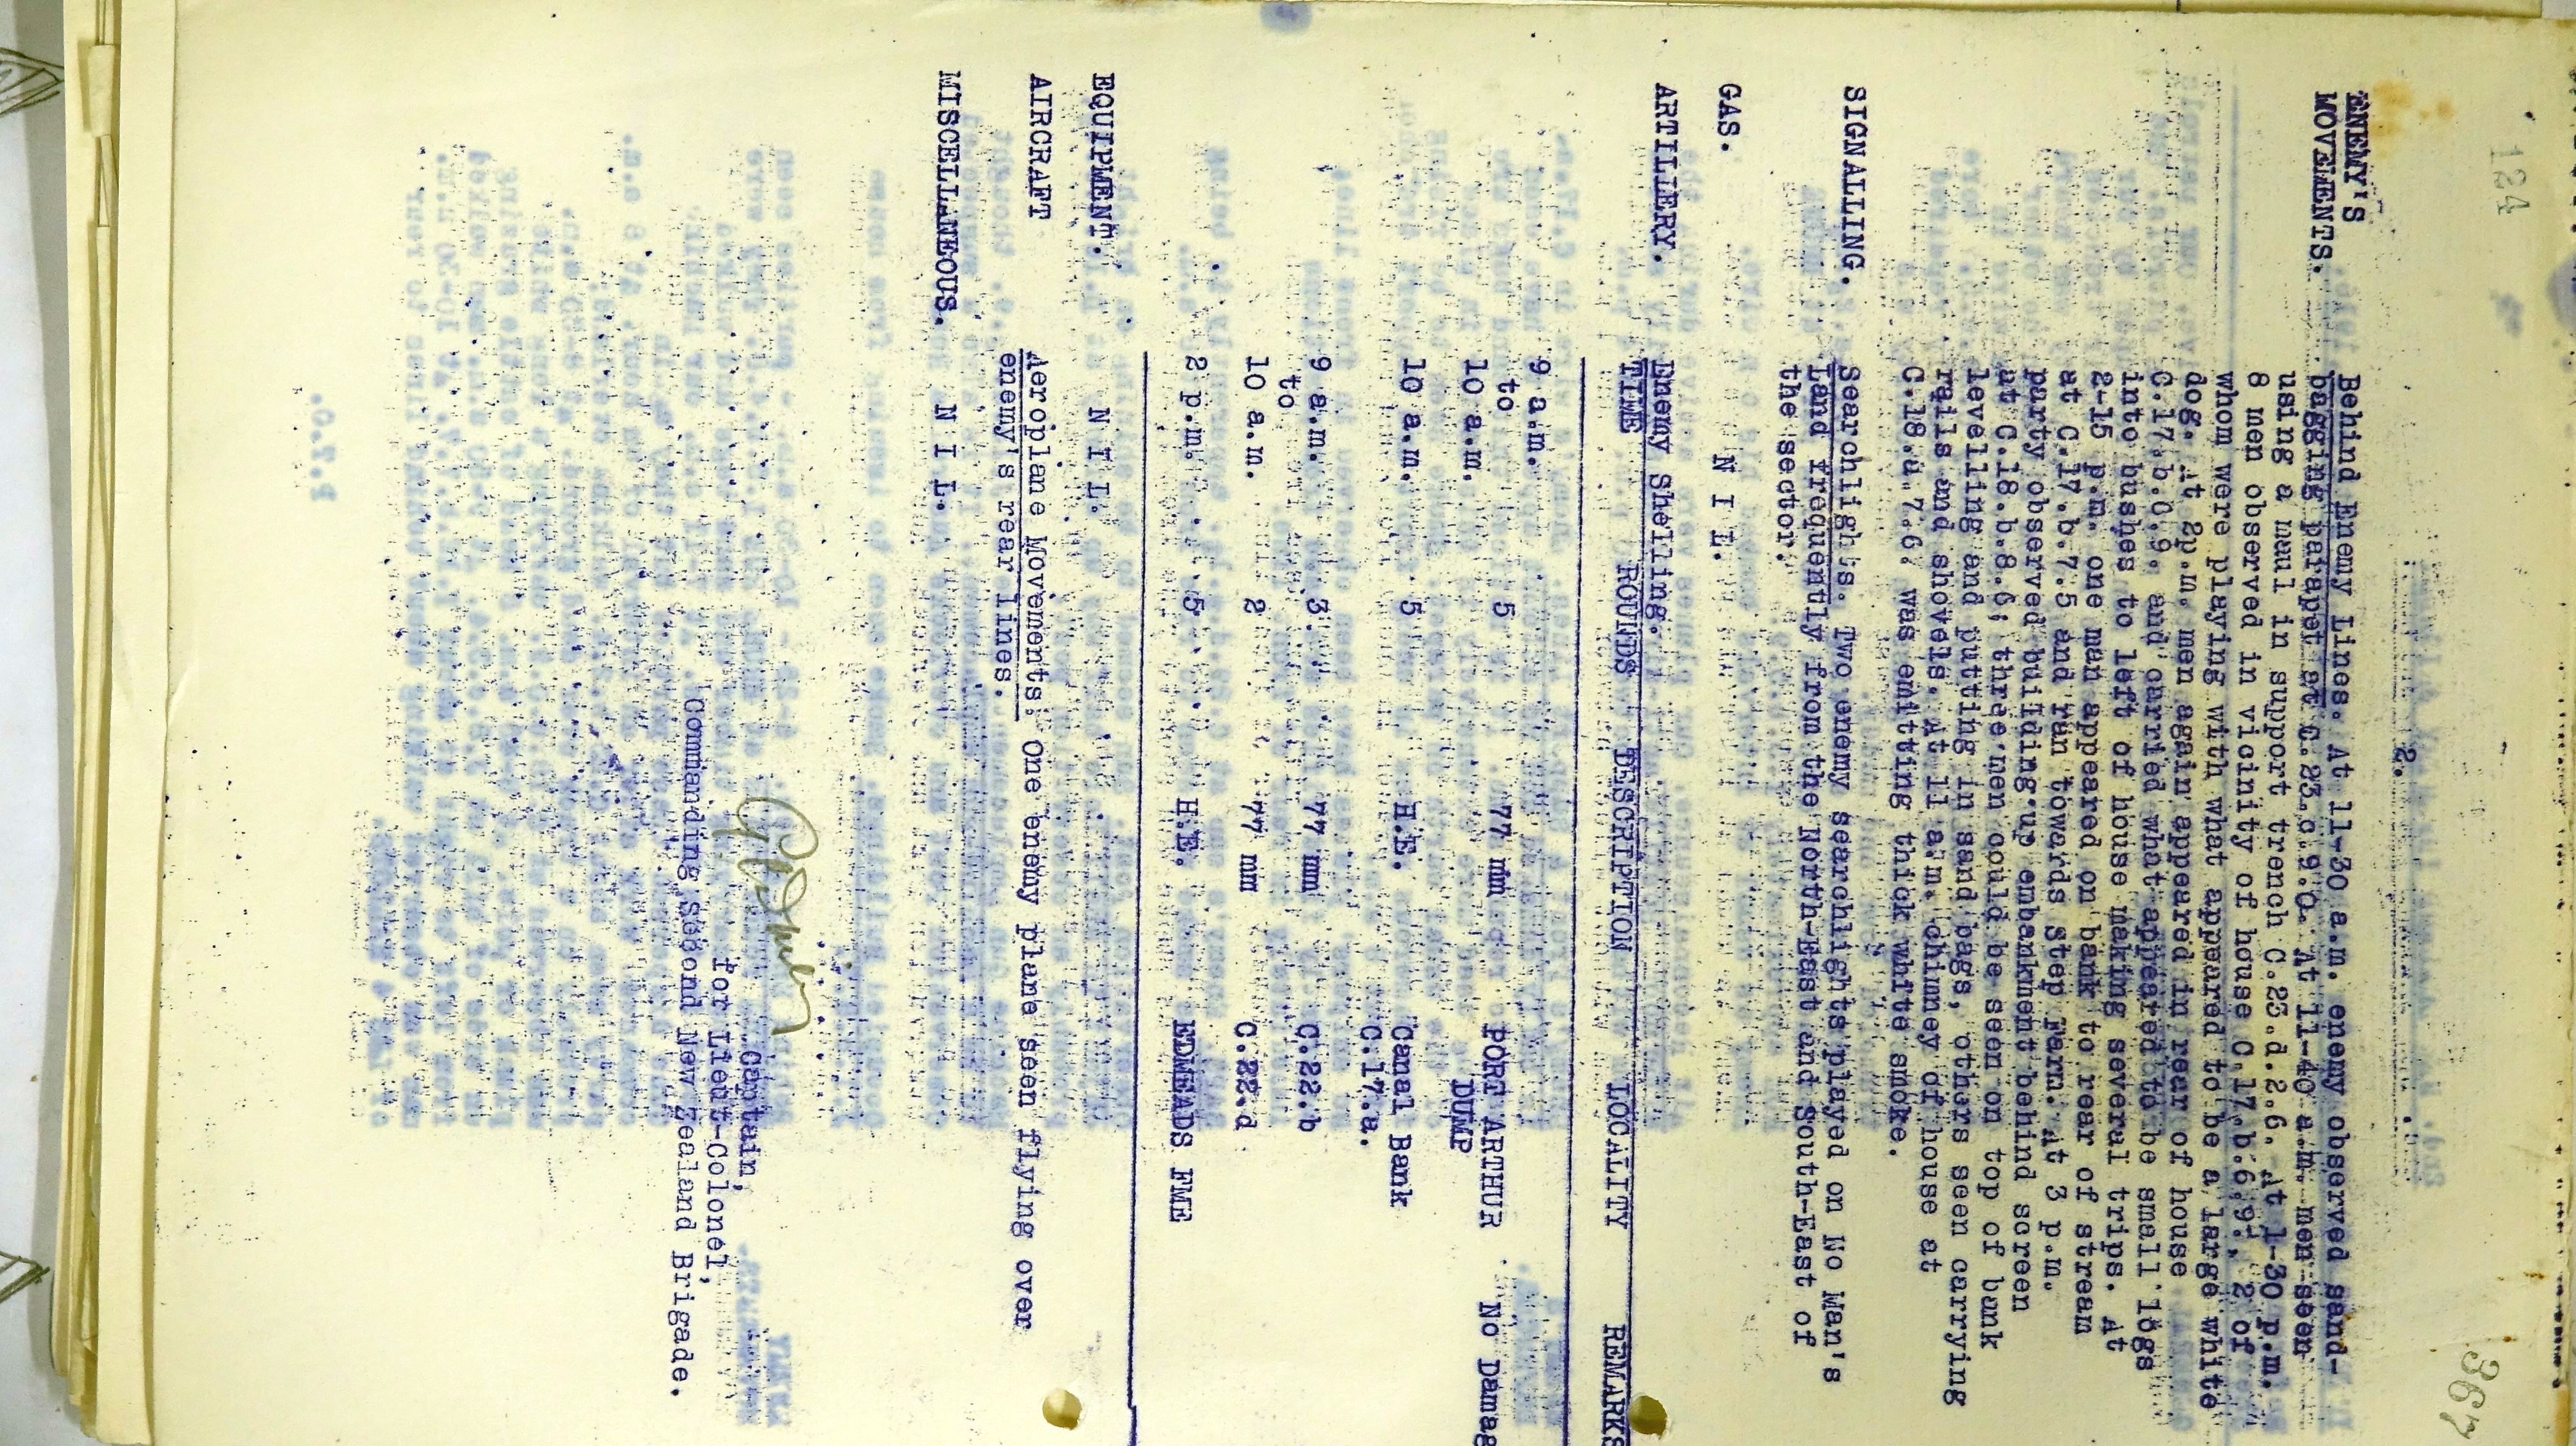 184
367
2.
ENEMY'S
MOVEMENTS.
Behind Enemy Lines. At 11-30 a.m. enemy observed sand-
bagging parapet at C.23.c.9.0. At 11-40 a.m. men seen
using a maul in support trench C.23.d.2.6. At 1-30 p.m.
8 men observed in vicinity of house C.17.b.6.9., 2 of
whom were playing with what appeared to be a large white
dog. At 2p.m. men again appeared in rear of house
C.17.b.6.9. and carried what appeared to be small logs
into bushes to left of house making several trips. At
2-15 p.m. one man appeared on bank to rear of stream
at C.17.b.7.5 and ran towards Step Farm. At 3 p.m.
party observed building up embankment behind screen
at C.18.b.8.6; three men could be seen on top of bank
levelling and putting in sand bags, others seen carrying
rails and shovels. At 11 a.m. chimney of house at
C.18.a.7.6. was emitting thick white smoke.
SIGNALLING.
Searchlights. Two enemy searchlights played on No Man's
Land frequently from the North-East and South-East of
the sector.
GAS. N I L.
ARTILLERY. Enemy Shelling.
TIME ROUNDS DESCRIPTION LOCALITY REMARKS
9 a.m.
to 5 77 mm PORT ARTHUR No Damag
10 a.m. DUMP
10 a.m. 5 H.E. Canal Bank
C.17.a.
9 a.m. 3 77 mm C.22.b
to
10 a.m. 2 77 mm C.22.d
2 p.m. 5 H.E. EDMEADS FME
EQUIPMENT. N I L.
AIRCRAFT Aeroplane Movements. One enemy plane seen flying over
enemy's rear lines.
MISCELLANEOUS. N I L.
Captain,
for Lieut-Colonel,
Commanding Second New Zealand Brigade.
P.T.O.